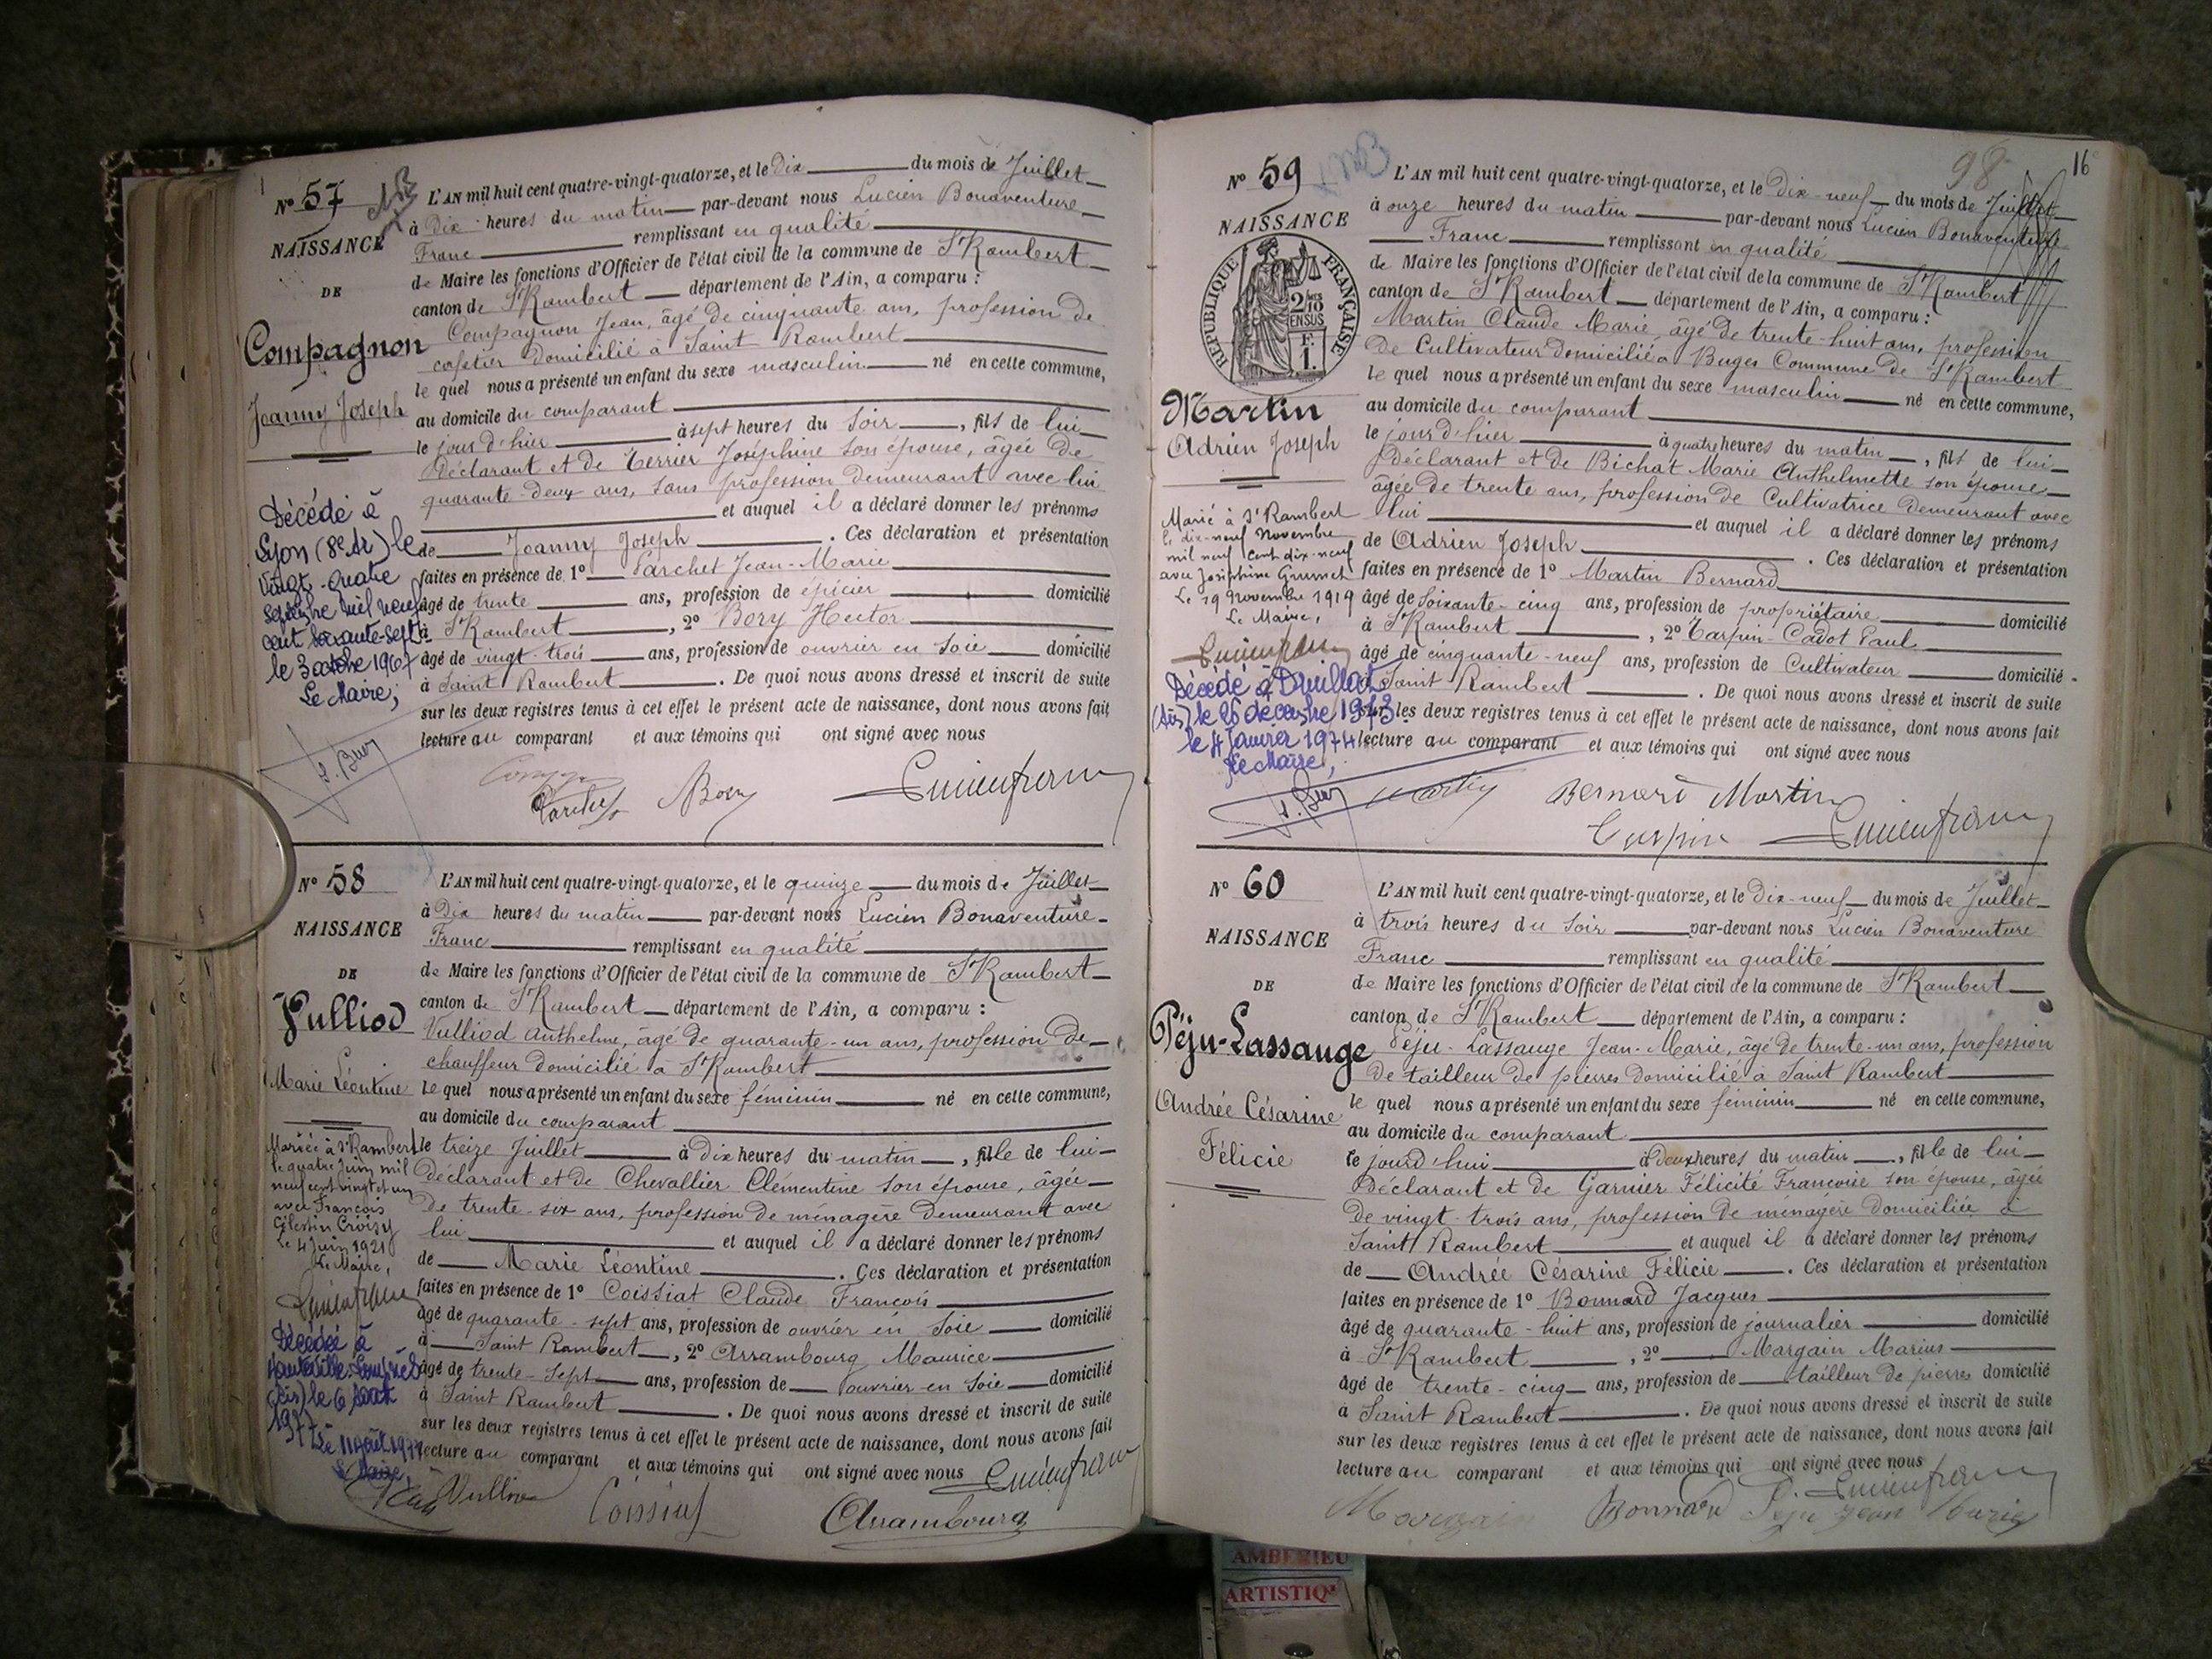 N° 57
NAISSANCE
DE
Compagnon
Joanny Joseph
Décédé à
Lyon (8e Ar) le
vingt-quatre
septembre mil neuf
cent soixante-sept
le 3 octobre 1967
Le Maire,
L'AN mil huit cent quatre-vingt-quatorze, et le Dix du mois de Juillet
à Dix heures du matin par-devant nous Lucien Bonaventure
Franc remplissant en qualité
de Maire les fonctions d'Officier de l'état civil de la commune de St Rambert
canton de St Rambert département de l'Ain, a comparu :
Compagnon Jean, âgé de cinquante ans, profession de
cafetier domicilié à Saint Rambert
le quel nous a présenté un enfant du sexe masculin né en cette commune,
au domicile du comparant
le jour d'hier à sept heures du soir, fils de lui
Déclarant et de Terrier Joséphine son épouse, âgée de
quarante-deux ans, sans profession demeurant avec lui
et auquel il a déclaré donner les prénoms
de Joanny Joseph. Ces déclaration et présentation
faites en présence de 1° Parchet Jean-Marie
âgé de trente ans, profession de épicier domicilié
à St Rambert, 2° Bory Hector
âgé de vingt-trois ans, profession de ouvrier en soie domicilié
à Saint Rambert. De quoi nous avons dressé et inscrit de suite
sur les deux registres tenus à cet effet le présent acte de naissance, dont nous avons fait
lecture au comparant et aux témoins qui ont signé avec nous
Bory Lucien franc
N° 58
NAISSANCE
DE
Vulliod
Marie Léontine
Mariée à St Rambert
le quatre Juin mil
neuf cent vingt et un
avec François
Célestin Croisy
Le 4 Juin 1921
Le Maire,
Lucien franc
Décédée à
Hauteville-Lompnes
(Ain) le 6 août
1977
Le 11 août 1977
Le Maire,
L'AN mil huit cent quatre-vingt-quatorze, et le quinze du mois de Juillet
à Dix heures du matin par-devant nous Lucien Bonaventure
Franc remplissant en qualité
de Maire les fonctions d'Officier de l'état civil de la commune de St Rambert
canton de St Rambert département de l'Ain, a comparu :
Vulliod Anthelme, âgé de quarante-un ans, profession de
chauffeur domicilié à St Rambert
le quel nous a présenté un enfant du sexe féminin né en cette commune,
au domicile du comparant
le treize Juillet à Dix heures du matin, fille de lui
déclarant et de Chevallier Clémentine son épouse, âgée
de trente-six ans, profession de ménagère demeurant avec
lui et auquel il a déclaré donner les prénoms
de Marie Léontine. Ces déclaration et présentation
faites en présence de 1° Coissiat Claude François
âgé de quarante-sept ans, profession de ouvrier en soie domicilié
à Saint Rambert, 2° Arrambourg Maurice
âgé de trente-sept ans, profession de ouvrier en soie domicilié
à Saint Rambert. De quoi nous avons dressé et inscrit de suite
sur les deux registres tenus à cet effet le présent acte de naissance, dont nous avons fait
lecture au comparant et aux témoins qui ont signé avec nous Lucien franc
Coissiat Arrambourg
98 16
N° 59
NAISSANCE
REPUBLIQUE FRANÇAISE
2/10 EN SUS
F. 1.
Martin
Adrien Joseph
Marié à St Rambert
le dix-neuf Novembre
mil neuf cent dix-neuf
avec Joséphine
Le 19 Novembre 1919
Le Maire,
Lucien franc
Décédé à Druillat
(Ain) le 26 décembre 1973
le 4 Janvier 1974
Le Maire,
L'AN mil huit cent quatre-vingt-quatorze, et le Dix-neuf du mois de Juillet
à onze heures du matin par-devant nous Lucien Bonaventure
Franc remplissant en qualité
de Maire les fonctions d'Officier de l'état civil de la commune de St Rambert
canton de St Rambert département de l'Ain, a comparu :
Martin Claude Marie, âgé de trente-huit ans, profession
de Cultivateur domicilié à Buges Commune de St Rambert
le quel nous a présenté un enfant du sexe masculin né en cette commune,
au domicile du comparant
le jour d'hier à quatre heures du matin, fils de lui
Déclarant et de Bichat Marie Anthelmette son épouse
âgée de trente ans, profession de Cultivatrice demeurant avec
lui et auquel il a déclaré donner les prénoms
de Adrien Joseph. Ces déclaration et présentation
faites en présence de 1° Martin Bernard
âgé de soixante-cinq ans, profession de propriétaire domicilié
à St Rambert, 2° Tarpin-Cadot Paul
âgé de cinquante-neuf ans, profession de Cultivateur domicilié
à Saint Rambert. De quoi nous avons dressé et inscrit de suite
sur les deux registres tenus à cet effet le présent acte de naissance, dont nous avons fait
lecture au comparant et aux témoins qui ont signé avec nous
Martin Bernard Martin
Tarpin Lucien franc
N° 60
NAISSANCE
DE
Péju-Lassauge
Andrée Césarine
Félicie
L'AN mil huit cent quatre-vingt-quatorze, et le Dix-neuf du mois de Juillet
à trois heures du soir par-devant nous Lucien Bonaventure
Franc remplissant en qualité
de Maire les fonctions d'Officier de l'état civil de la commune de St Rambert
canton de St Rambert département de l'Ain, a comparu :
Péju-Lassauge Jean-Marie, âgé de trente-un ans, profession
de tailleur de pierres domicilié à Saint Rambert
le quel nous a présenté un enfant du sexe féminin né en cette commune,
au domicile du comparant
le jourd'hui à deux heures du matin, fille de lui
Déclarant et de Garnier Félicité Françoise son épouse, âgée
de vingt-trois ans, profession de ménagère domiciliée à
Saint Rambert et auquel il a déclaré donner les prénoms
de Andrée Césarine Félicie. Ces déclaration et présentation
faites en présence de 1° Bonnard Jacques
âgé de quarante-huit ans, profession de journalier domicilié
à St Rambert, 2° Margain Marius
âgé de trente-cinq ans, profession de tailleur de pierres domicilié
à Saint Rambert. De quoi nous avons dressé et inscrit de suite
sur les deux registres tenus à cet effet le présent acte de naissance, dont nous avons fait
lecture au comparant et aux témoins qui ont signé avec nous
Lucien franc
Margain Bonnard Péju Jean Marie
AMBERIEU
ARTISTIQ